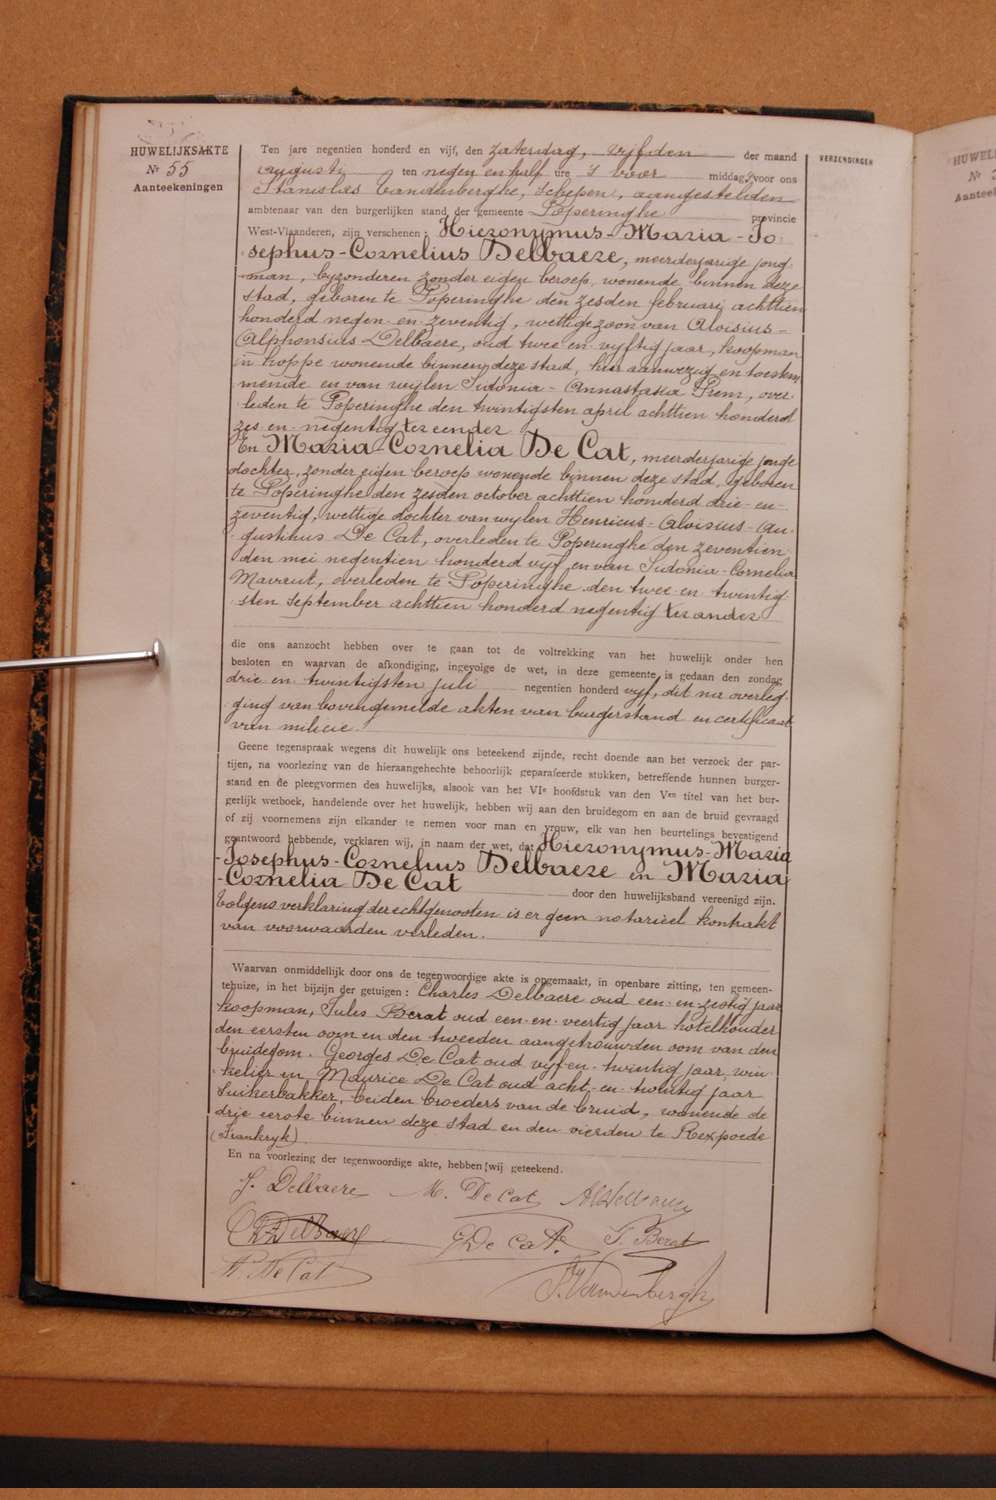 HUWELIJKSAKTE
Nr 55
Aanteekeningen
VERZENDINGEN
Ten jare negentien honderd en vijf, den zaterdag, vijfden der maand
augusti ten negen en half ure 's voor middag, voor ons
Stanislas Vandenberghe, schepen, aangestelden
ambtenaar van den burgerlijken stand der gemeente Poperinghe provincie
West-Vlaanderen, zijn verschenen : Hieronymus-Maria-Jo
sephus-Cornelius Delbaere, meerderjarige jong-
man, byzonderen zonder eigen beroep, wonende binnen deze
stad, geboren te Poperinghe den zesden februarij achttien
honderd negen en zeventig, wettige zoon van Aloisius-
Alphonsius Delbaere, oud twee en vyftig jaar, koopman
in hoppe wonende binnen deze stad, hier aanwezig en toestem
mende en van wijlen Sidonia-Annastasia Prem, over-
leden te Poperinghe den twintigsten april achttien honderd
zes en negentig ter eender
En Maria-Cornelia De Cat, meerderjarige jonge
dochter, zonder eigen beroep wonende binnen deze stad, geboren
te Poperinghe den zesden october achttien honderd drie en
zeventig, wettige dochter van wylen Henricus-Aloisius-Au-
gustinus De Cat, overleden te Poperinghe den zeventien-
den mei negentien honderd vijf en van Sidonia-Cornelia
Mavaut, overleden te Poperinghe den twee en twintig-
sten september achttien honderd negentig ter ander
die ons aanzocht hebben over te gaan tot de voltrekking van het huwelijk onder hen
besloten en waarvan de afkondiging, ingevolge de wet, in deze gemeente is gedaan den zondag
drie en twintigsten juli negentien honderd vijf, dit na overleg-
ging van bovengemelde akten van burgerstand en certificaat
van milicie.
Geene tegenspraak wegens dit huwelijk ons beteekend zijnde, recht doende aan het verzoek der par-
tijen, na voorlezing van de hieraangehechte behoorlijk geparafeerde stukken, betreffende hunnen burger-
stand en de pleegvormen des huwelijks, alsook van het VIe hoofdstuk van den Ven titel van het bur-
gerlijk wetboek, handelende over het huwelijk, hebben wij aan den bruidegom en aan de bruid gevraagd
of zij voornemens zijn elkander te nemen voor man en vrouw, elk van hen beurtelings bevestigend
geantwoord hebbende, verklaren wij, in naam der wet, dat Hieronymus-Maria
-Josephus-Cornelius Delbaere en Maria
-Cornelia De Cat door den huwelijksband vereenigd zijn.
Volgens verklaring der echtgenooten is er geen notarieel kontrakt
van voorwaarden verleden.
Waarvan onmiddellijk door ons de tegenwoordige akte is opgemaakt, in openbare zitting, ten gemeen-
tehuize, in het bijzijn der getuigen : Charles Delbaere oud een en zestig jaar
koopman, Jules Berat oud een en veertig jaar hotelhouder
den eersten oom en den tweeden aangetrouwden oom van den
bruidegom. Georges De Cat oud vijf en twintig jaar, win
kelier en Maurice De Cat oud acht en twintig jaar
suikerbakker, beiden broeders van de bruid, wonende de
drie eerste binnen deze stad en den vierden te Rexpoede
(Frankryk)
En na voorlezing der tegenwoordige akte, hebben wij geteekend.
J. Delbaere M. De Cat Al Delbaere
Ch Delbaere G De Cat J. Berat
M. De Cat S. Vandenberghe